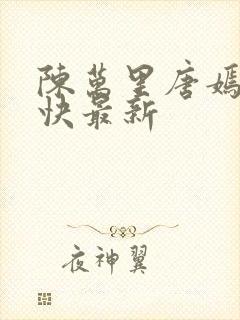 陳萬里唐嫣
快最新
夜神翼